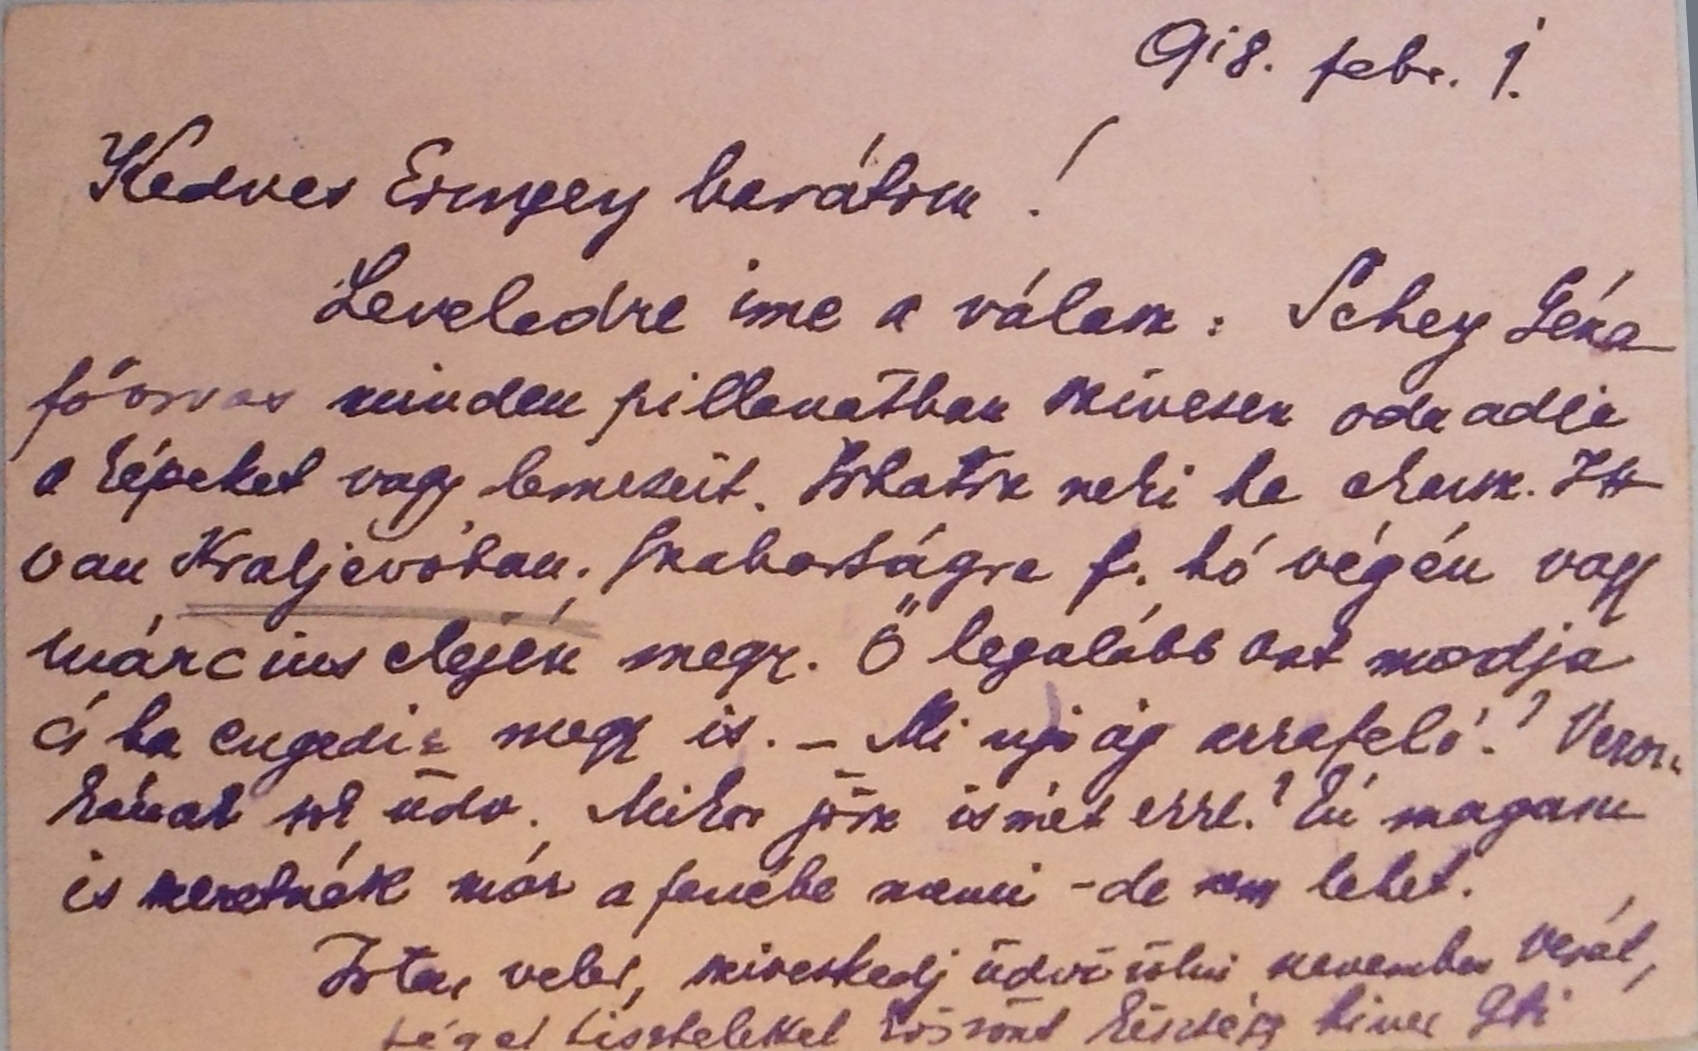 918. febr. 1.
Kedves barátom!
Leveledre ime a válasz: Schey Géza
főorvos minden pillanatban szívesen oda adja
a képeket vagy lemezeit. Irhatsz neki ha akarsz. Itt
van Kraljevóban. Szabadságra f. hó végén vagy
március elején megy. Ő legalább ezt mondja
és ha engedik megy is. – Mi ujság arrafelé? Veron-
kának sok üdv. Mikor jösz ismét erre? Én magam
is szeretnék már a fenébe menni – de nem lehet.
Isten veled, szíveskedj üdvözölni nevemben
téged tisztelettel köszönt hived